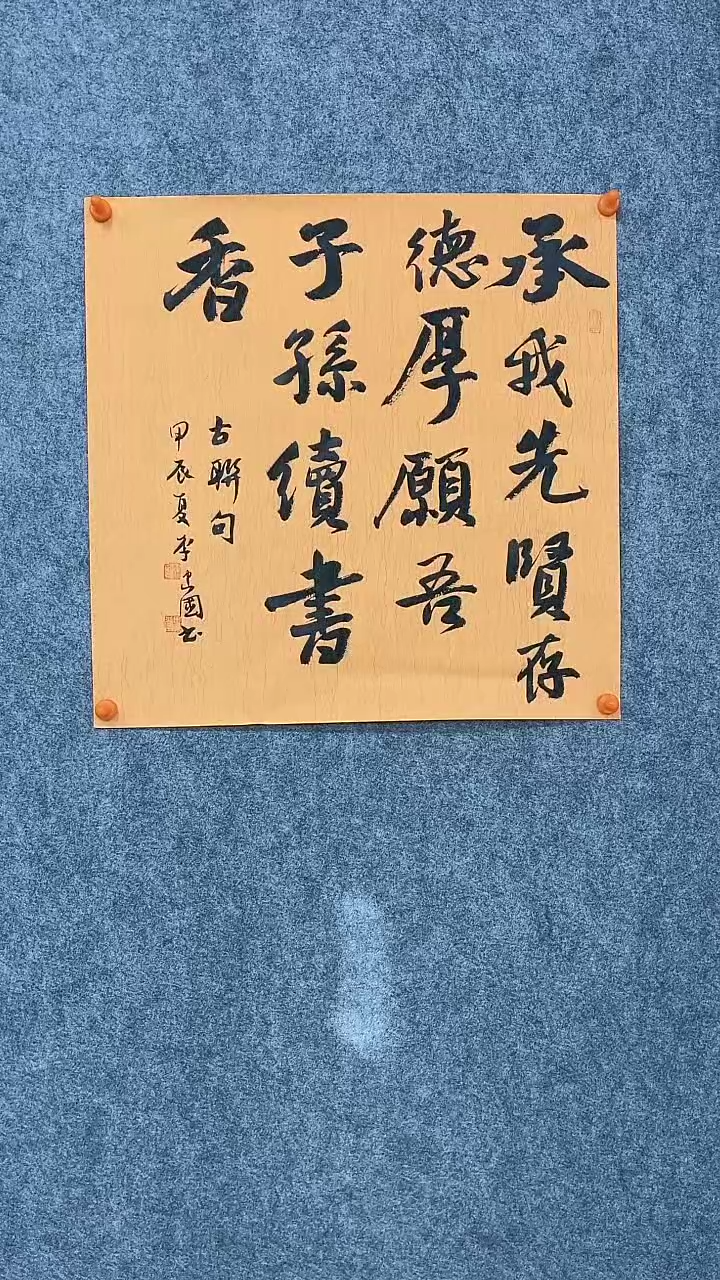 承我先賢存
德厚願吾
子孫續書
香
古聯句
甲辰夏李忠國书